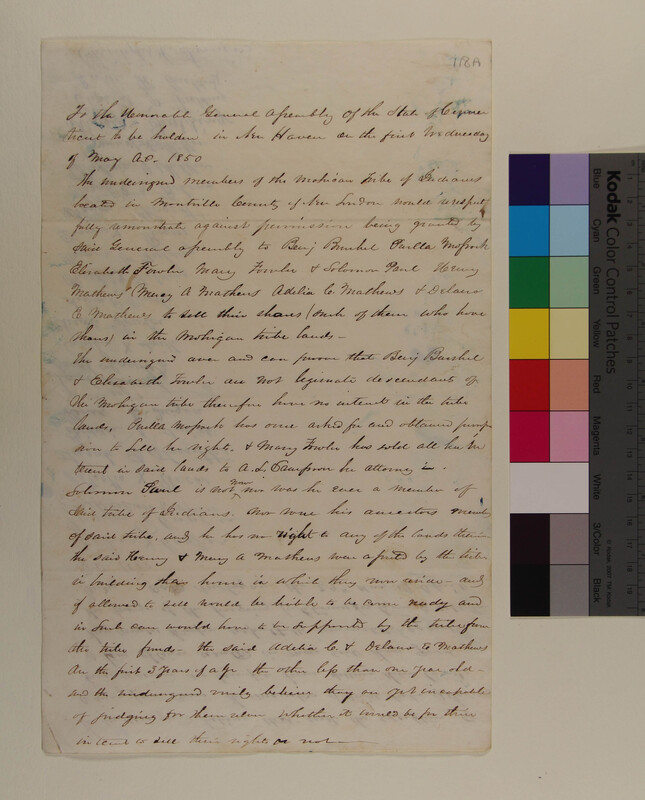 918A
To the Honorable General Assembly of the State of Connec
ticut to be holden in New Haven on the first Wednesday
of May A.D. 1850
The undersigned members of the Mohican tribe of Indians
located in Montville County of New London would respect
fully remonstrate against permission being granted by
said General Assembly to Benj
Elizabeth Fowler Mary Fowler & Solomon Paul Henry
Mathews Mercy A Mathews Adelia C. Mathews & Delano
E Mathews to sell their shares (such of them who have
shares) in the Mohigan tribe lands—
The undersigned aver and can prove that Benj
& Elizabeth Fowler are not legimate descendant of
the Mohigan tribe therefore have no interest in the tribe
lands, has once asked for and obtained permis
sion to sell her right. & Mary Fowler has sold all her in
terest in said lands to A. L. her attorney
Solomon Paul is not now nor was he ever a member of
said tribe of Indians. nor were his ancesters members
of said tribe, and he has no right to any of the lands
the said Henry & Mercy A Mathews was by the tribe
in building they house in which they now reside— and
if allowed to sell would be liable to become needy and
in such case would have to be supported by the tribe from
the tribe funds— the said Adelia C. & Delano E Mathews
are the first 3 years of age the other less than one year old—
and the undersigned verily believe they are yet incapable
of judging for themselves whether it would be for their
interest to sell their rights or not—
Kodak Color Control Patches
Blue
Cyan
Green
Yellow
Red
Magenta
White
3/Color
Black